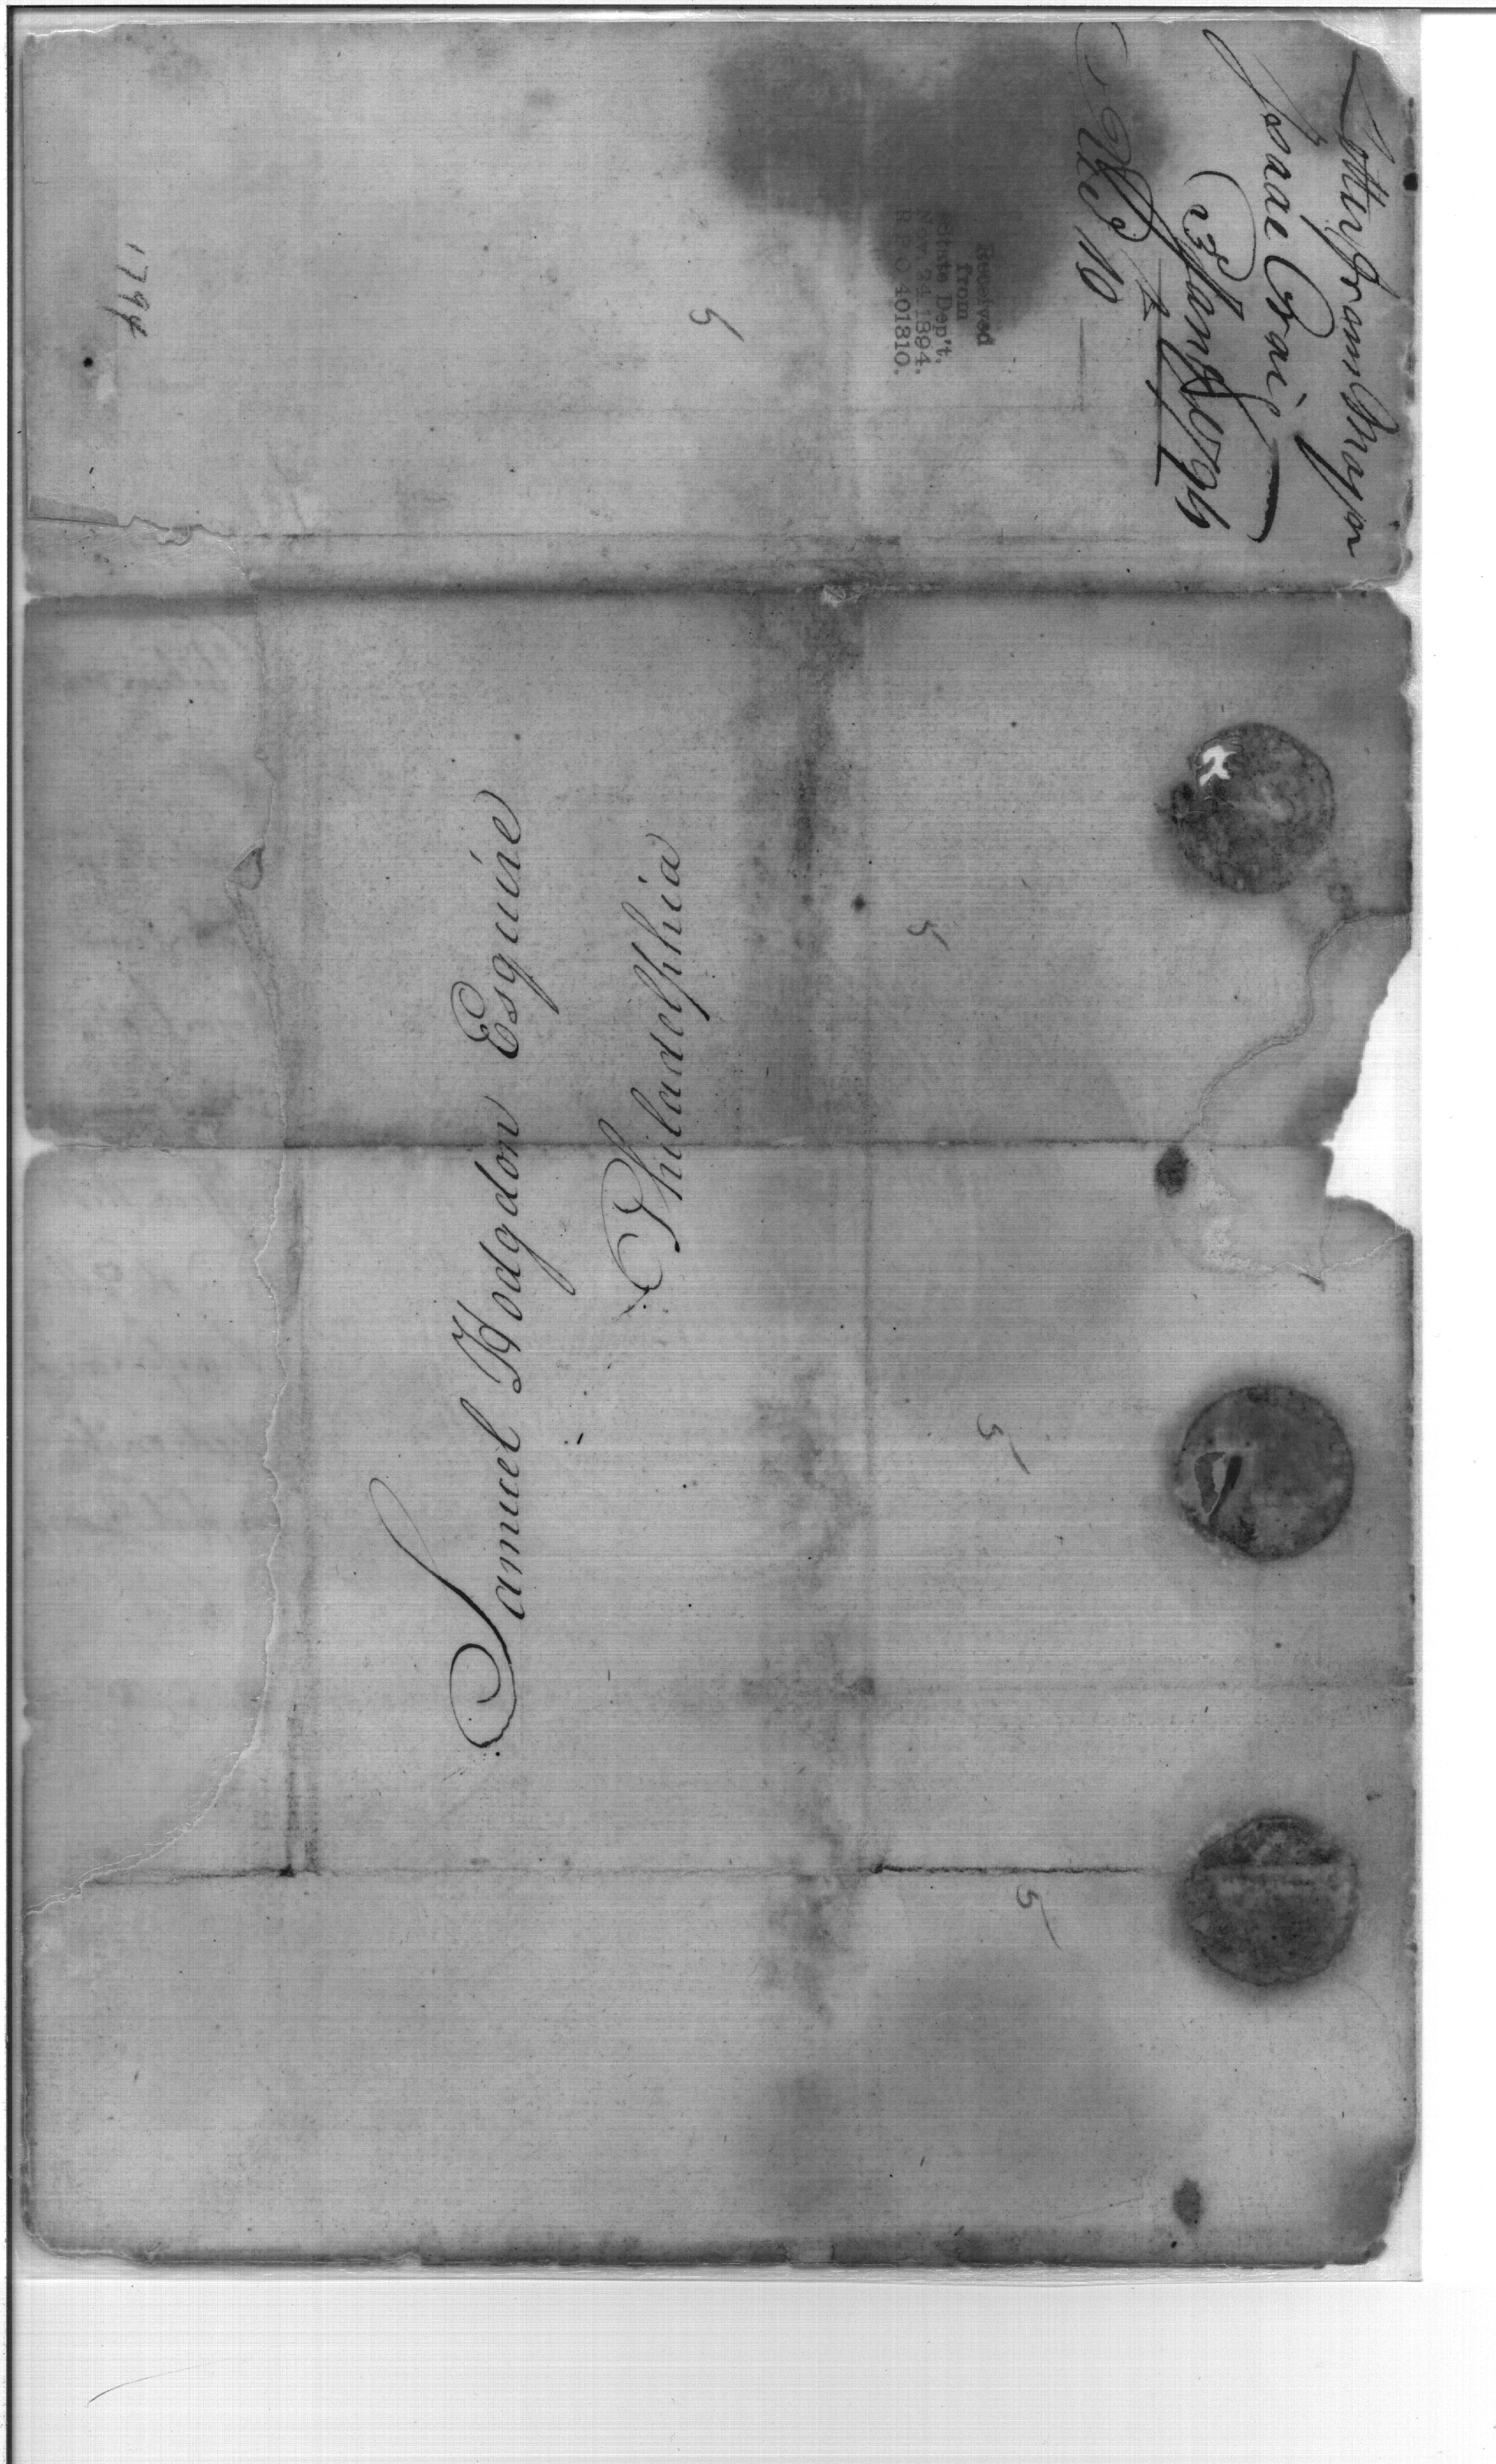 Samuel Hodgdon Esquire
Philadelphia
Letter from Major
Isaac Craig
Received
from
State Dep't.
Nov. 24, 1894.
R & P O 401810.
5
5
5
5
1794